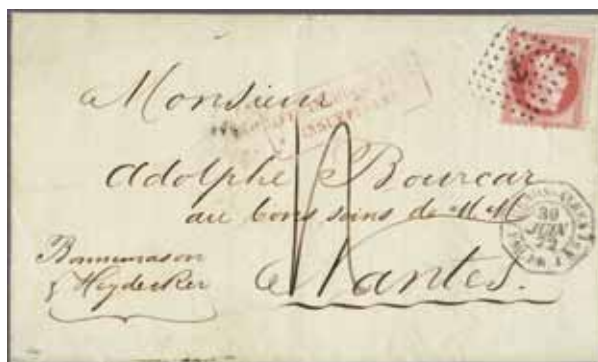 Monsieur
Adolphe Bourcar
au bons soins de MM
Bonnemason
& Heydecker
à Nantes.
30
JUIN
72